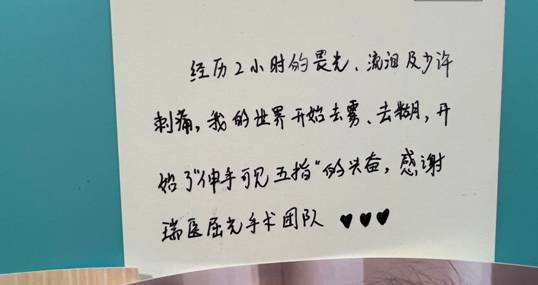 经历2小时的畏光、流泪及少许
刺痛，我的世界开始去雾、去糊，开
始了"伸手可见五指"的兴奋，感谢
瑞医屈光手术团队 ♥♥♥